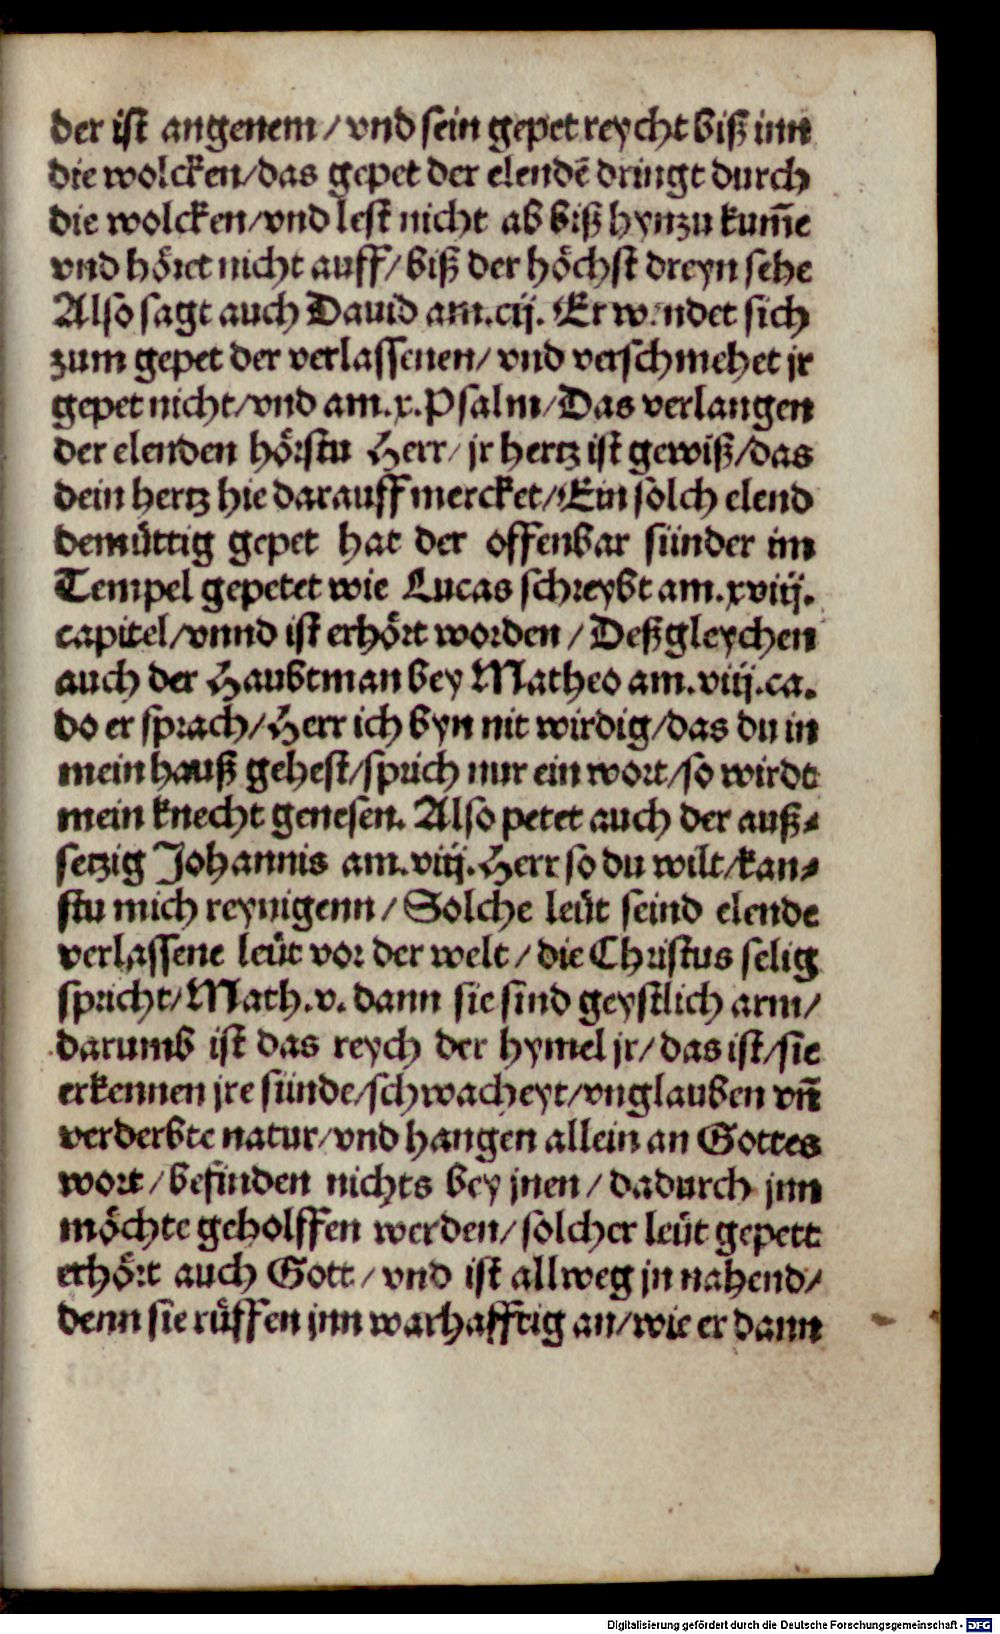 der ist angenem / vnd sein gepet reycht biß inn
die wolcken/das gepet der elendē dringt durch
die wolcken/vnd lest nicht ab biß hynzu kum̄e
vnd höret nicht auff/ biß der höchst dreyn sehe
Also sagt auch Dauid am.cij. Er wendet sich
zum gepet der verlassenen/ vnd verschmehet jr
gepet nicht/vnd am.x.Psalm/Das verlangen
der elenden hörstu Herr/ jr hertz ist gewiß/das
dein hertz hie darauff mercket/Ein solch elend
demüttig gepet hat der offenbar sünder im
Tempel gepetet wie Lucas schreybt am.xviij.
capitel/vnnd ist erhört worden / Deßgleychen
auch der Haubtman bey Matheo am.viij.ca.
do er sprach/Herr ich byn nit wirdig/das du in
mein hauß gehest/sprich nur ein wort/so wirdt
mein knecht genesen. Also petet auch der auß⸗
setzig Johannis am.viij.Herr so du wilt/kan⸗
stu mich reynigenn / Solche leüt seind elende
verlassene leüt vor der welt / die Christus selig
spricht/Math.v. dann sie sind geystlich arm/
darumb ist das reych der hymel jr/ das ist/sie
erkennen jre sünde/schwacheyt/vnglauben vn̄
verderbte natur/vnd hangen allein an Gottes
wort / befinden nichts bey jnen / dadurch jnn
möchte geholffen werden/ solcher leüt gepett
erhört auch Gott / vnd ist allweg jn nahend/
denn sie rüffen jnn warhafftig an/wie er dann
Digitalisierung gefördert durch die Deutsche Forschungsgemeinschaft - DFG